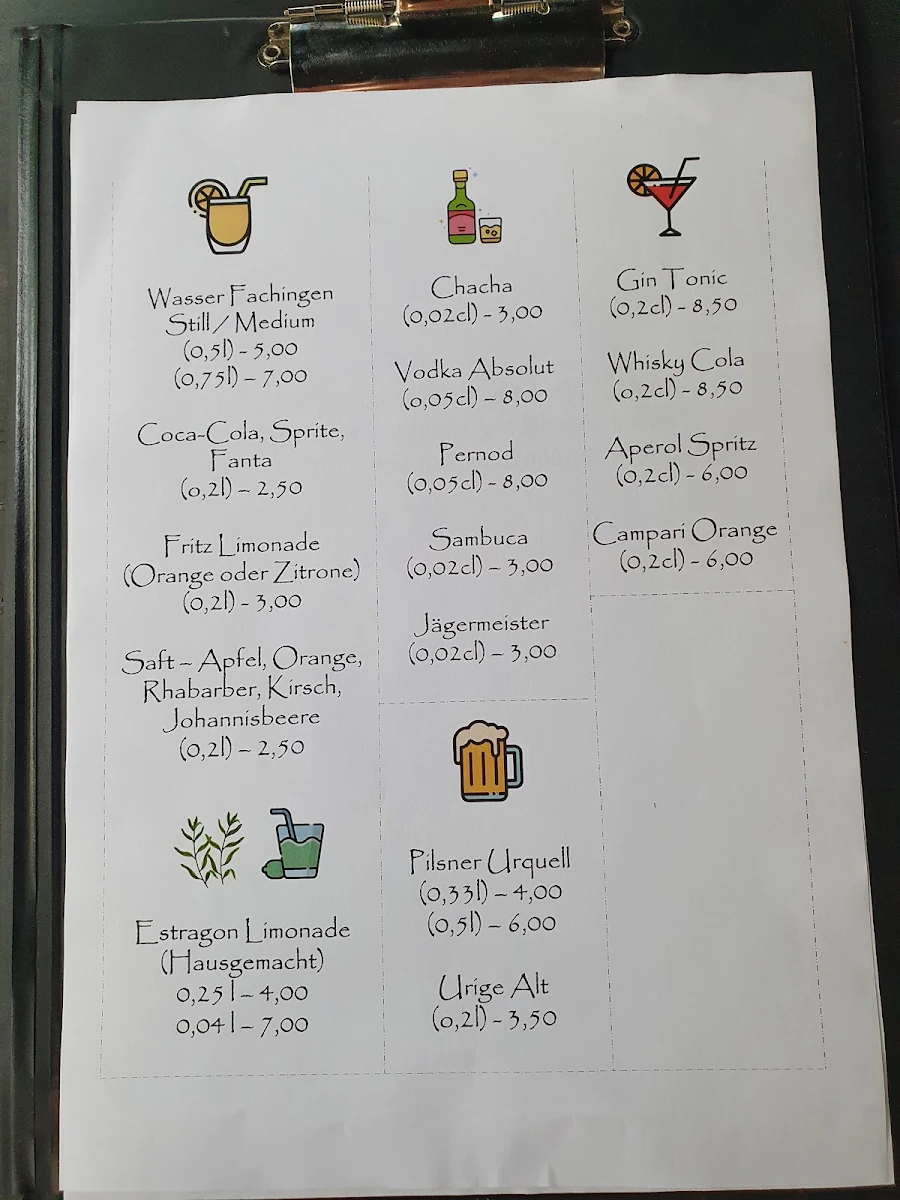 Wasser Fachingen
Still / Medium
(0,5l) - 5,00
(0,75l) – 7,00
Coca-Cola, Sprite,
Fanta
(0,2l) – 2,50
Fritz Limonade
(Orange oder Zitrone)
(0,2l) - 3,00
Saft – Apfel, Orange,
Rhabarber, Kirsch,
Johannisbeere
(0,2l) – 2,50
Estragon Limonade
(Hausgemacht)
0,25 l – 4,00
0,04 l – 7,00
Chacha
(0,02cl) - 3,00
Vodka Absolut
(0,05cl) – 8,00
Pernod
(0,05cl) - 8,00
Sambuca
(0,02cl) – 3,00
Jägermeister
(0,02cl) – 3,00
Pilsner Urquell
(0,33l) – 4,00
(0,5l) – 6,00
Urige Alt
(0,2l) - 3,50
Gin Tonic
(0,2cl) - 8,50
Whisky Cola
(0,2cl) - 8,50
Aperol Spritz
(0,2cl) - 6,00
Campari Orange
(0,2cl) - 6,00